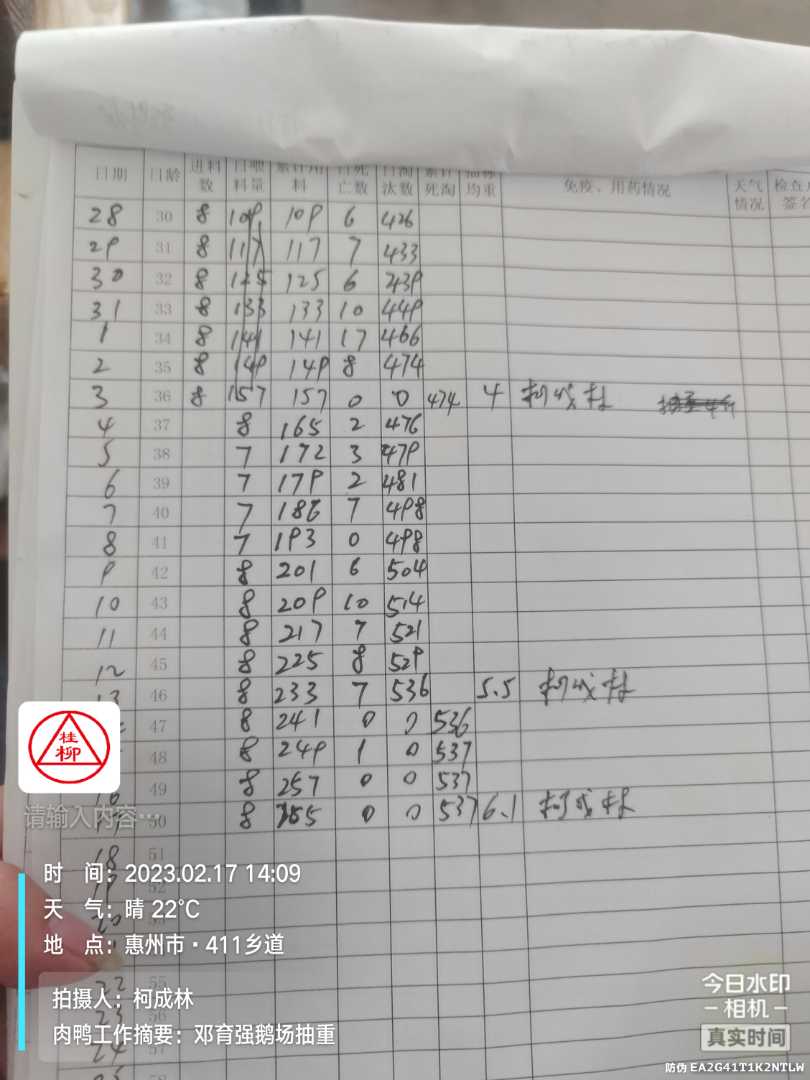 日期 日龄 进料数 日喂料量 累计用料 日死亡数 日淘汰数 累计死淘 抽称均重 免疫、用药情况 天气情况 检查 签名
28 30 8 109 109 6 426
29 31 8 117 117 7 433
30 32 8 125 125 6 439
31 33 8 133 133 10 449
1 34 8 141 141 17 466
2 35 8 149 149 8 474
3 36 8 157 157 0 0 474 4 柯成林
4 37 8 165 2 476
5 38 7 172 3 479
6 39 7 179 2 481
7 40 7 186 7 498
8 41 7 193 0 498
9 42 8 201 6 504
10 43 8 209 10 514
11 44 8 217 7 521
12 45 8 225 8 529
13 46 8 233 7 536 5.5 柯成林
47 8 241 0 0 536
48 8 249 1 0 537
49 8 257 0 0 537
50 8 0 0 537 6.1 柯成林
18 51
19 52
20
22 55
23 56
24 57
58
桂柳
请输入内容…
时 间：2023.02.17 14:09
天 气：晴 22℃
地 点：惠州市·411乡道
拍摄人：柯成林
肉鸭工作摘要：邓育强鹅场抽重
今日水印
相机
真实时间
防伪 EA2G41T1K2NTLW